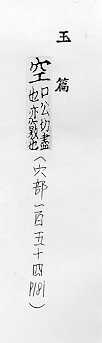 玉篇
空 口公切盡
也亦次戝也
（穴部一百五十四 P181）